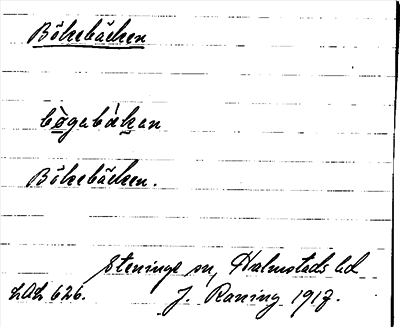 Bökebäcken
bøgabækan
Bökebäcken.
Steninge sn, Halmstads hd
LAL 626. J. Raning 1917.